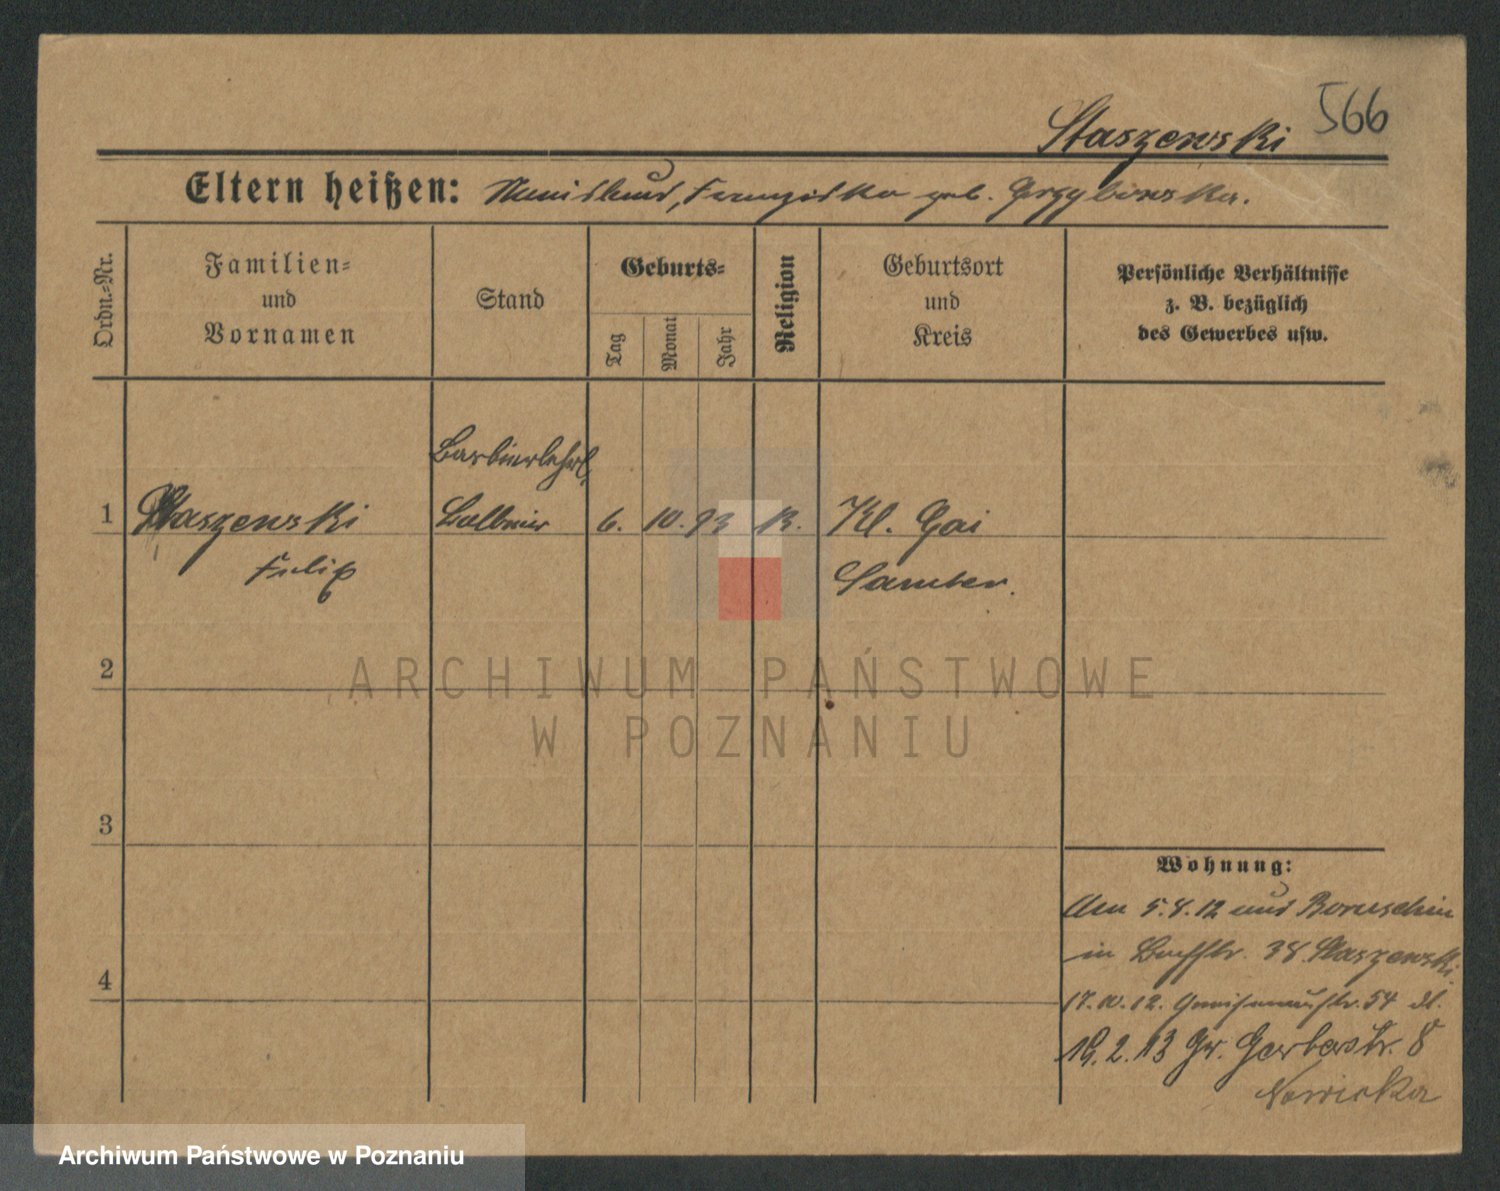 566
Staszewski
Eltern heißen: Stanislaus, Franziska geb. Grzybowska.
Ordn.-Nr.
Familien-
und
Vornamen
Stand
Geburts-
Tag
Monat
Jahr
Religion
Geburtsort
und
Kreis
Persönliche Verhältnisse
z. B. bezüglich
des Gewerbes usw.
Barbierlehrl.
1 Staszewski 6. 10. 93 K. Kl. Gai
Felix Samter.
2
ARCHIWUM PAŃSTWOWE
W POZNANIU
3
Wohnung:
Am 5.8.12 aus Boruschin
in Bachstr. 38. Staszewski
4
17.10.12. Gneisenaustr. 54
19.2.13 Gr. Gerberstr. 8
Nowicka
Archiwum Państwowe w Poznaniu